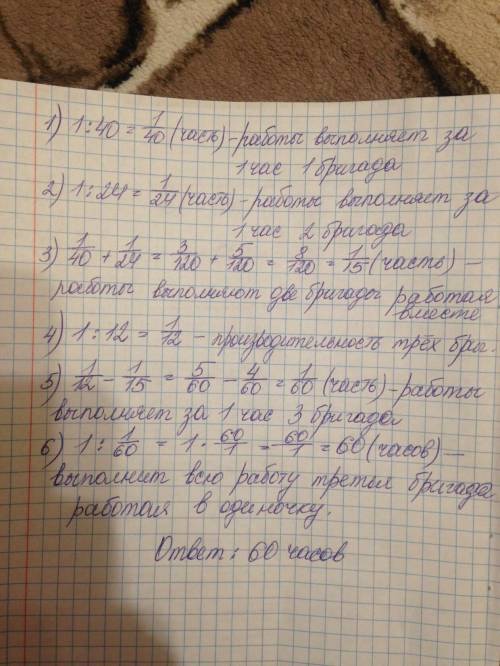 1) 1:40 = 1/40 (часть) - работы выполняет за
1 час 1 бригада
2) 1:24 = 1/24 (часть) - работы выполняет за
1 час 2 бригада
3) 1/40 + 1/24 = 3/120 + 5/120 = 8/120 = 1/15 (часть) -
работы выполняют две бригады работая
вместе
4) 1:12 = 1/12 - производительность трёх бриг.
5) 1/12 - 1/15 = 5/60 - 4/60 = 1/60 (часть) - работы
выполняет за 1 час 3 бригада
6) 1 : 1/60 = 1 · 60/1 = 60/1 = 60 (часов) -
выполнит всю работу третья бригада
работая в одиночку.
Ответ: 60 часов